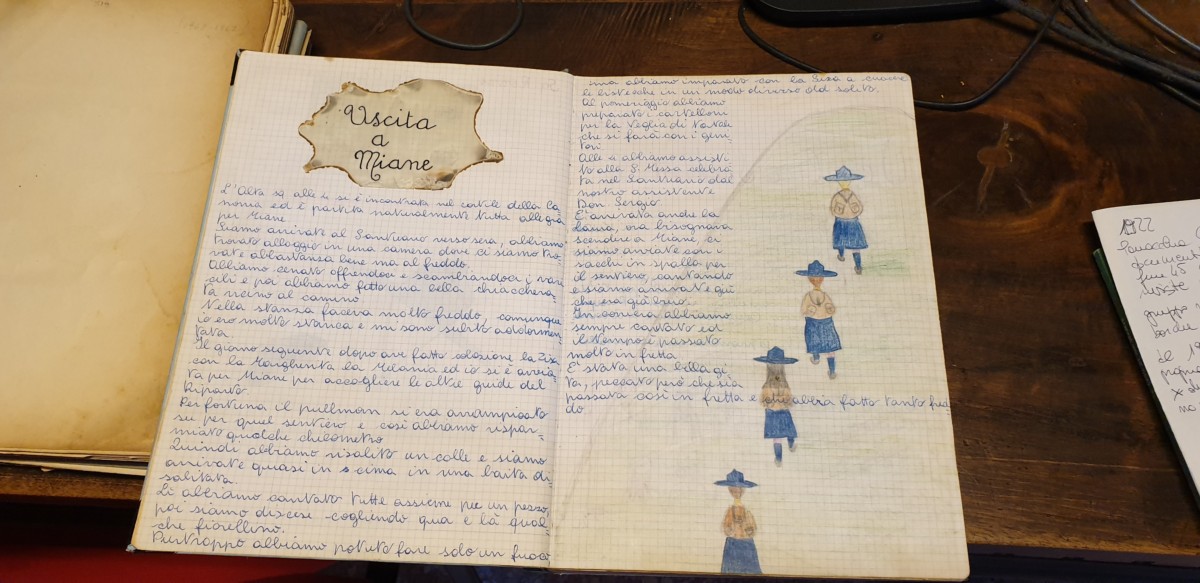 Uscita
a
Miane
L'Alta sq. alle 4 si è incontrata nel cortile della Ca=
nonia ed è partita naturalmente tutta allegra
per Miane.
Siamo arrivate al Santuario verso sera, abbiamo
trovato alloggio in una camera dove ci siamo tro=
vate abbastanza bene ma al freddo.
Abbiamo cenato offrendoci e scambiandoci i vari
cibi e poi abbiamo fatto una bella chiacchera=
ta vicino al camino.
Nella stanza faceva molto freddo, comunque
io ero molto stanca e mi sono subito addormen=
tata.
Il giorno seguente dopo ave fatto colazione la Lisa
con la Margherita la Melania ed io si è avvia=
ta per Miane per accogliere le altre guide del
Riparto.
Per fortuna il pullman si era arrampicato
su per quel sentiero e così abbiamo rispar=
miato qualche chilometro
Quindi abbiamo risalito un colle e siamo
arrivate quasi in scima in una baita di=
sabitata.
Lì abbiamo cantato tutte assieme per un pezzo,
poi siamo discese cogliendo qua e là qual=
che fiorellino.
Purtroppo abbiamo potuto fare solo un fuoco
ma abbiamo imparato con la Lisa a cuocere
le bistecche in un modo diverso dal solito.
Al pomeriggio abbiamo
preparato i cartelloni
per la Veglia di Natale
che si farà con i geni=
tori
Alle 4 abbiamo assisti=
to alla S. Messa celebra=
ta nel Santuario dal
nostro assistente
Don. Sergio.
E' arrivata anche la
sera, ora bisognava
scendere a Miane, ci
siamo avviate con i
sacchi in spalla per
il sentiero, cantando
e siamo arrivate giù
che era già buio.
In corriera abbiamo
sempre cantato ed
il tempo è passato
molto in fretta
E' stata una bella gi=
ta, peccato però che sia
passata così in fretta e che abbia fatto tanto fred=
do.
1922
Parrocchia
document
fine 45
gruppo
border